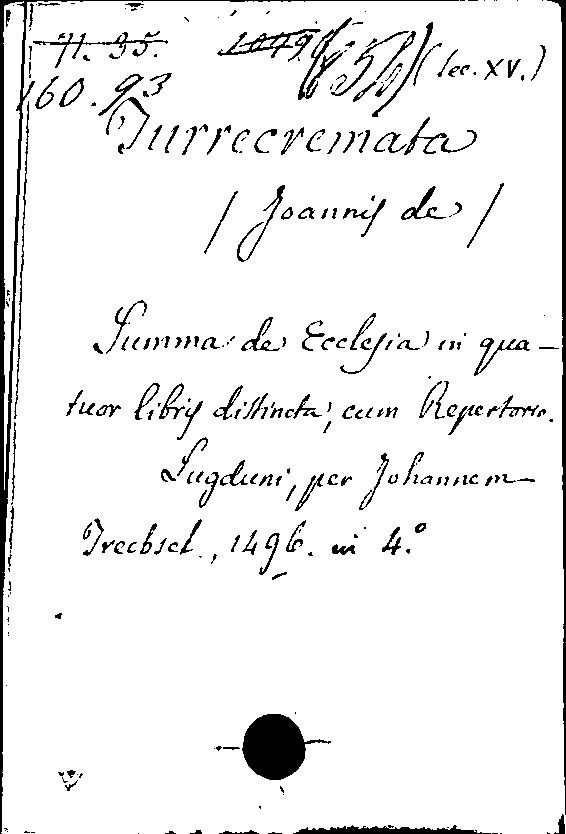 71. 35. 1079. (sec. XV.)
160. 93
Turrecremata
/ Joannis de /
Summa de Ecclesia in qua-
tuor libris distincta, cum Repertorio.
Lugduni, per Johannem
Trechsel., 1496. in 4.°